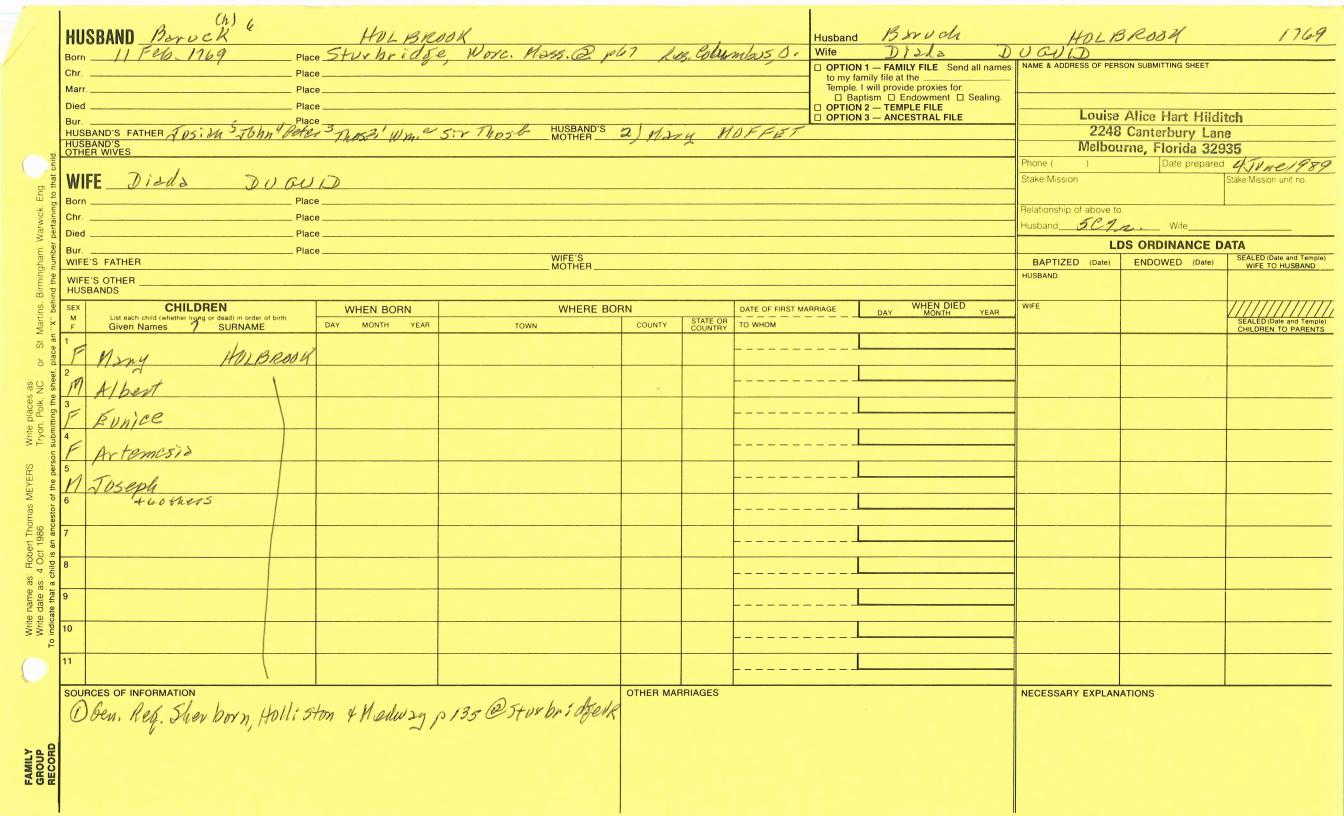 (h) 6
HUSBAND Baruck HOLBROOK
Born 11 Feb. 1769 Place Sturbridge, Worc. Mass. @ p67 Res. Columbus, O.
Chr. Place
Marr. Place
Died Place
Bur. Place
HUSBAND'S FATHER Josiah 5 John 4 Peter 3 Thos 2 1 Wm a Sir Thos b HUSBAND'S MOTHER 2) Mary MOFFET
HUSBAND'S OTHER WIVES
WIFE Diada DUGUID
Born Place
Chr. Place
Died Place
Bur. Place
WIFE'S FATHER WIFE'S MOTHER
WIFE'S OTHER HUSBANDS
Husband Baruch HOLBROOK 1769
Wife Diada DUGUID
☐ OPTION 1 — FAMILY FILE Send all names
to my family file at the
Temple. I will provide proxies for:
☐ Baptism ☐ Endowment ☐ Sealing.
☐ OPTION 2 — TEMPLE FILE
☐ OPTION 3 — ANCESTRAL FILE
NAME & ADDRESS OF PERSON SUBMITTING SHEET
Louise Alice Hart Hilditch
2248 Canterbury Lane
Melbourne, Florida 32935
Phone ( ) Date prepared 4 June 1989
Stake/Mission Stake/Mission unit no.
Relationship of above to
Husband 5C7r. Wife
LDS ORDINANCE DATA
BAPTIZED (Date) ENDOWED (Date) SEALED (Date and Temple) WIFE TO HUSBAND
HUSBAND
WIFE
SEALED (Date and Temple) CHILDREN TO PARENTS
SEX M F
CHILDREN
List each child (whether living or dead) in order of birth
Given Names SURNAME
WHEN BORN
DAY MONTH YEAR
WHERE BORN
TOWN COUNTY STATE OR COUNTRY
DATE OF FIRST MARRIAGE
TO WHOM
WHEN DIED
DAY MONTH YEAR
1 F Mary HOLBROOK
2 M Albert
3 F Eunice
4 F Artemesia
5 M Joseph
6 + 6 others
7
8
9
10
11
SOURCES OF INFORMATION
① Gen. Reg. Sherborn, Holliston & Medway p 135 @ Sturbridge VR
OTHER MARRIAGES
NECESSARY EXPLANATIONS
Write name as: Robert Thomas MEYERS Write places as: Tryon, Polk, NC or St Martins, Birmingham, Warwick, Eng
Write date as: 4 Oct 1986
To indicate that a child is an ancestor of the person submitting the sheet, place an "X" behind the number pertaining to that child.
FAMILY GROUP RECORD